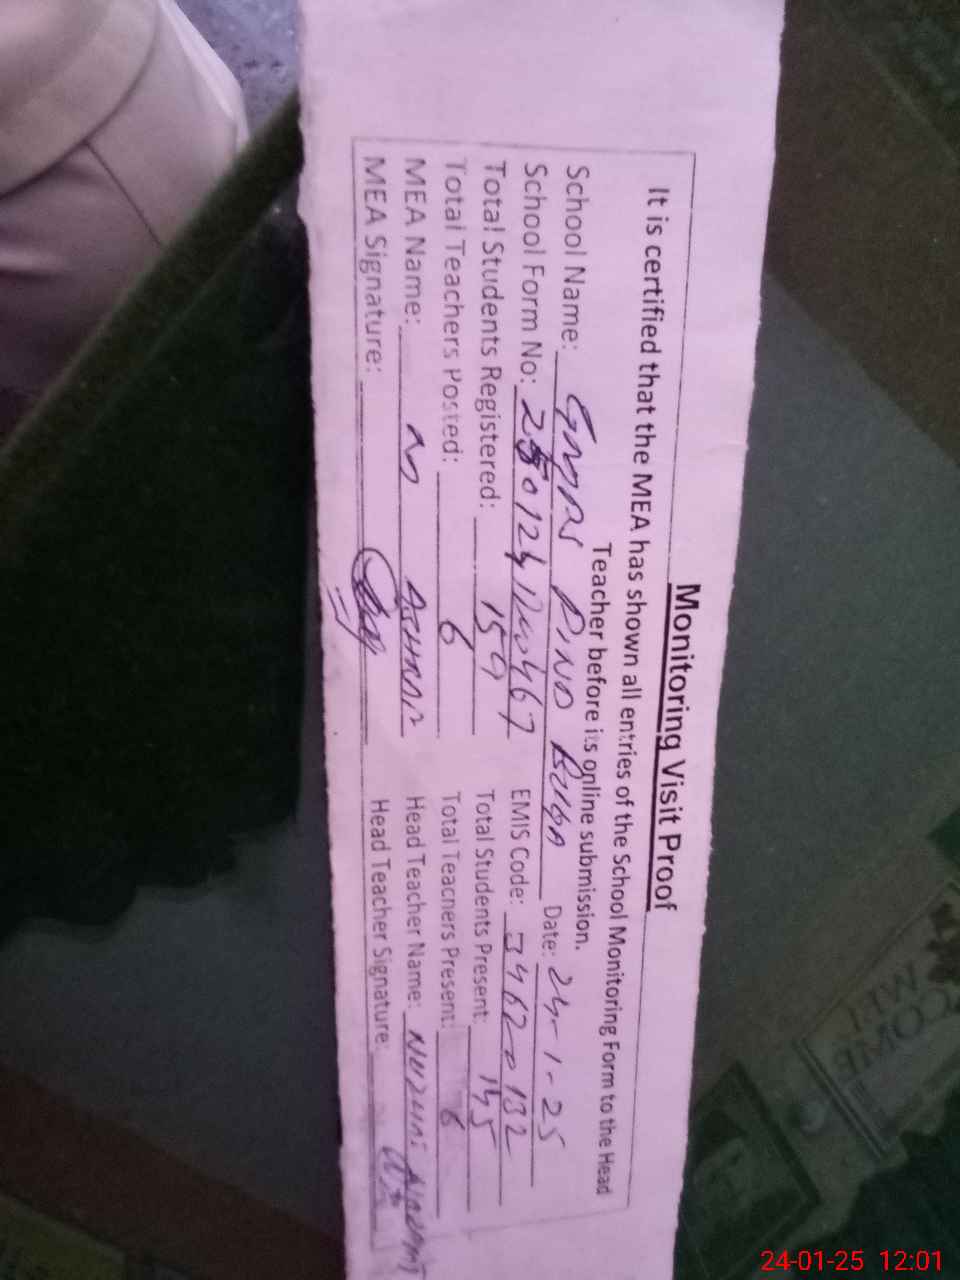 Monitoring Visit Proof
It is certified that the MEA has shown all entries of the School Monitoring Form to the Head
Teacher before its online submission.
School Name: GMPS PIND Date: 24-1-25
School Form No: EMIS Code: 34620132
Total Students Registered: 159 Total Students Present: 145
Total Teachers Posted: 6 Total Teachers Present: 6
MEA Name: M Head Teacher Name:
MEA Signature: Head Teacher Signature:
WELCOME
24-01-25 12:01